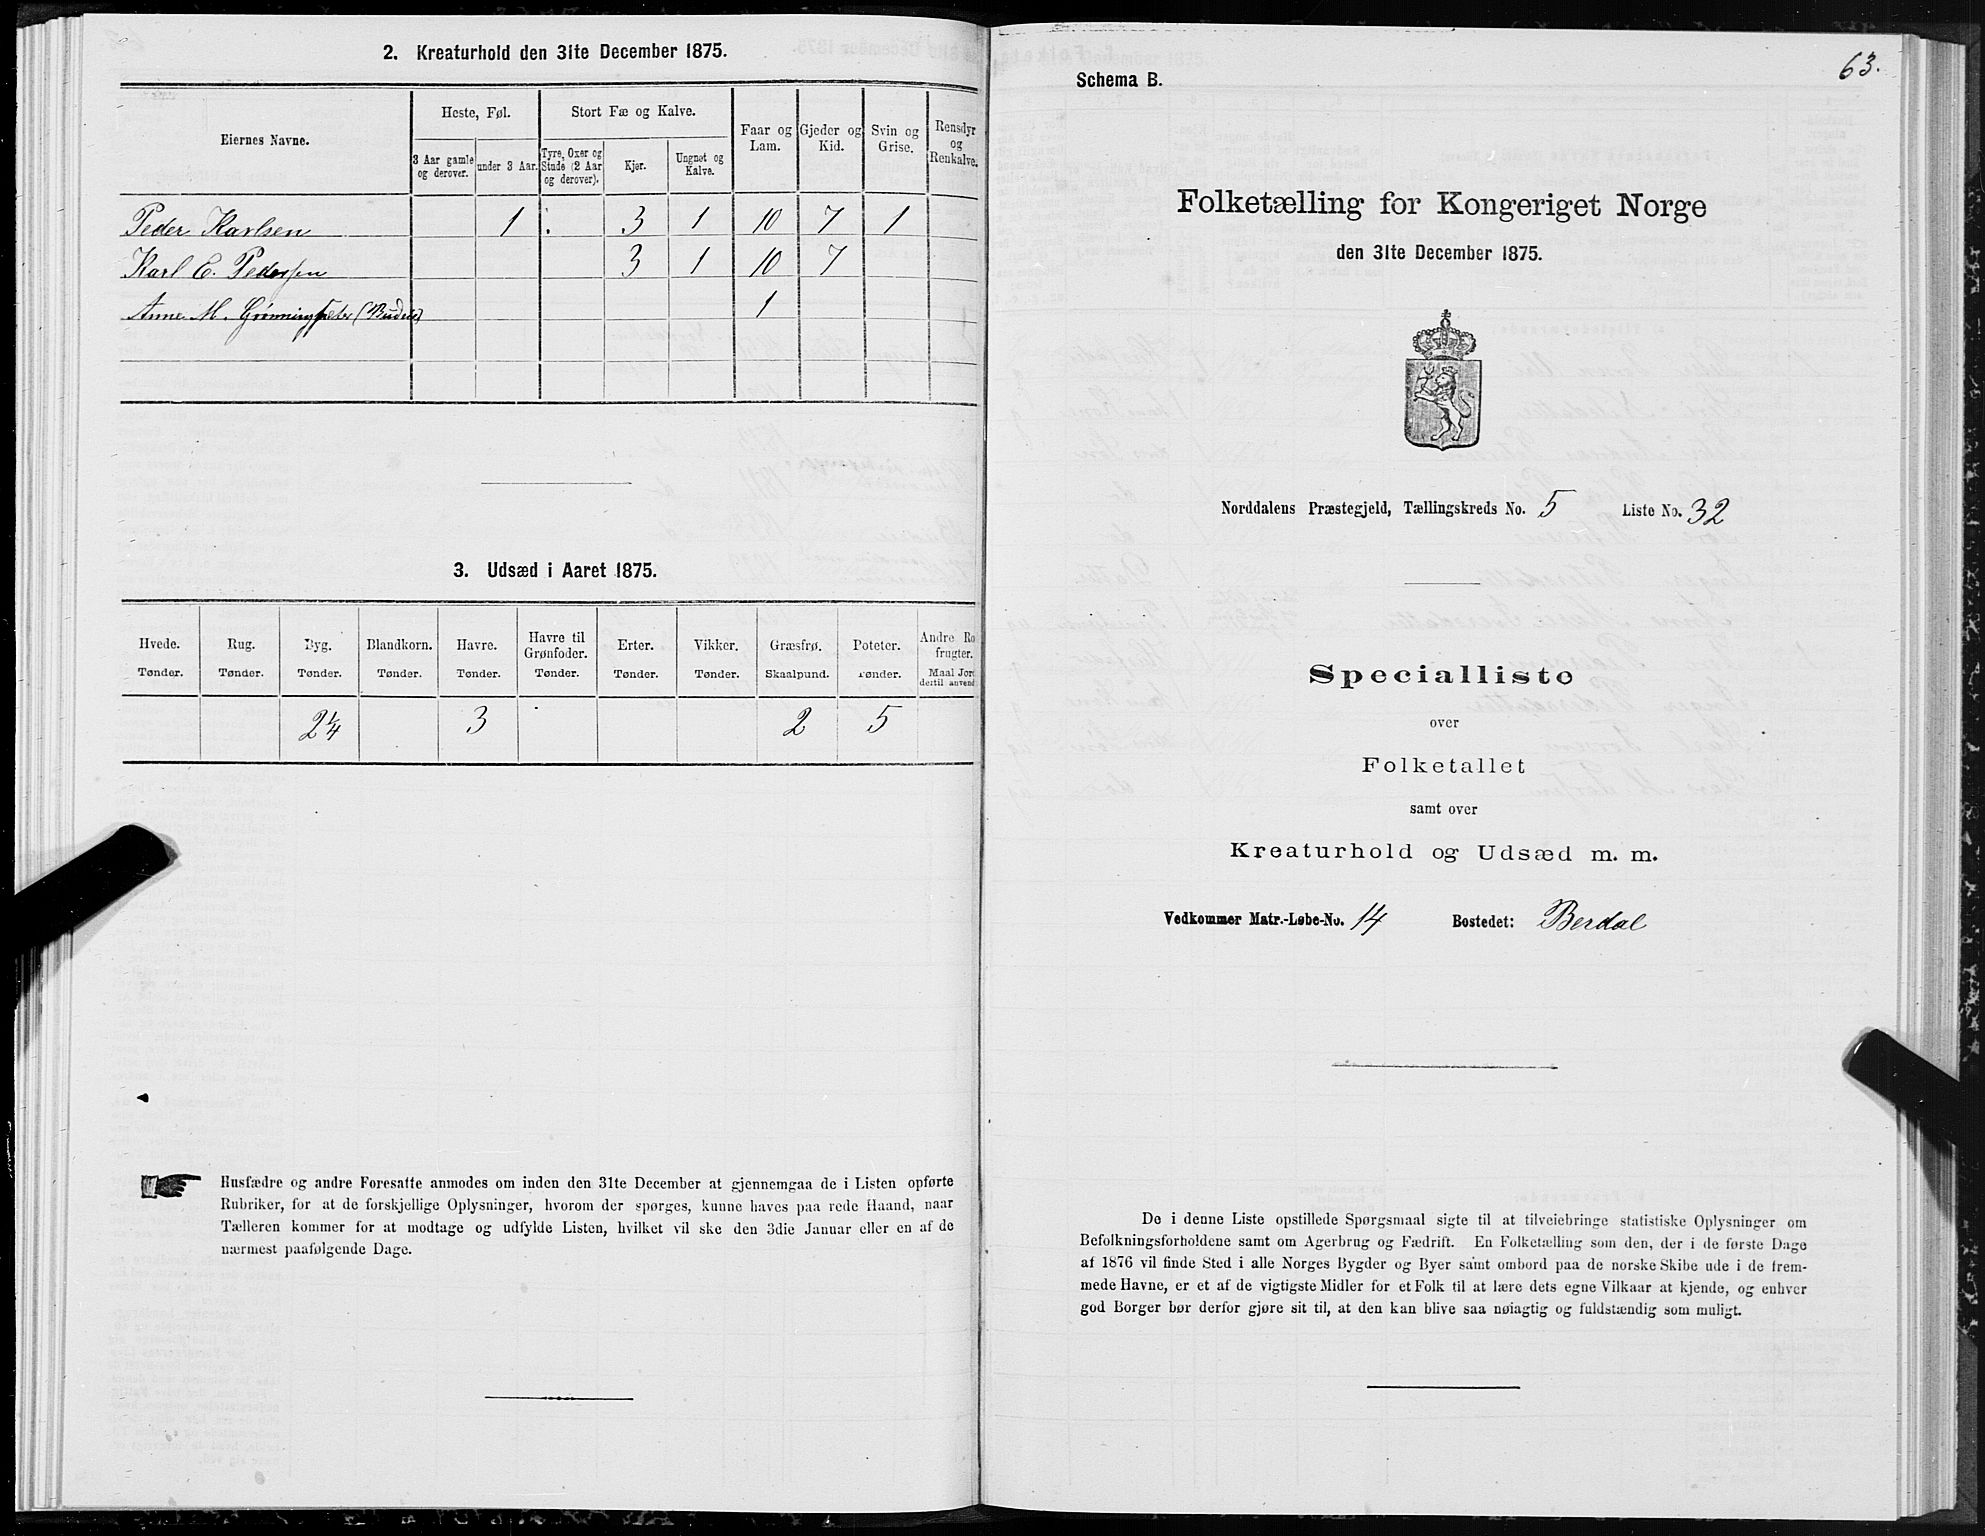 2. Kreaturhold den 31te December 1875.
Eiernes Navne.
Heste, Føl.
Stort Fæ og Kalve.
Faar og Lam.
Gjeder og Kid.
Svin og Grise.
Rensdyr og Renkalve.
3 Aar gamle og derover.
under 3 Aar.
Tyre, Oxer og Stude (2 Aar og derover).
Kjør.
Ungnøt og Kalve.
Peder Karlsen 1 3 1 10 7 1
Karl E. Pederssen 3 1 10 7
Anne M. 1
3. Udsæd i Aaret 1875.
Hvede. Rug. Byg. Blandkorn. Havre. Havre til Grønfoder. Erter. Vikker. Græsfrø. Poteter. Andre Ro frugter.
Tønder. Tønder. Tønder. Tønder. Tønder. Tønder. Tønder. Tønder. Skaalpund. Tønder. Maal Jord dertil anvend
2 1/4 3 2 5
Husfædre og andre Foresatte anmodes om inden den 31te December at gjennemgaa de i Listen opførte
Rubriker, for at de forskjellige Oplysninger, hvorom der spørges, kunne haves paa rede Haand, naar
Tælleren kommer for at modtage og udfylde Listen, hvilket vil ske den 3die Januar eller en af de
nærmest paafølgende Dage.
63.
Schema B.
Folketælling for Kongeriget Norge
den 31te December 1875.
Norddalens Præstegjeld, Tællingskreds No. 5 Liste No. 32
Specialliste
over
Folketallet
samt over
Kreaturhold og Udsæd m. m.
Vedkommer Matr.-Løbe-No. 14 Bostedet: Berdal
De i denne Liste opstillede Spørgsmaal sigte til at tilveiebringe statistiske Oplysninger om
Befolkningsforholdene samt om Agerbrug og Fædrift. En Folketælling som den, der i de første Dage
af 1876 vil finde Sted i alle Norges Bygder og Byer samt ombord paa de norske Skibe ude i de frem-
mede Havne, er et af de vigtigste Midler for et Folk til at lære dets egne Vilkaar at kjende, og enhver
god Borger bør derfor gjøre sit til, at den kan blive saa nøiagtig og fuldstændig som muligt.